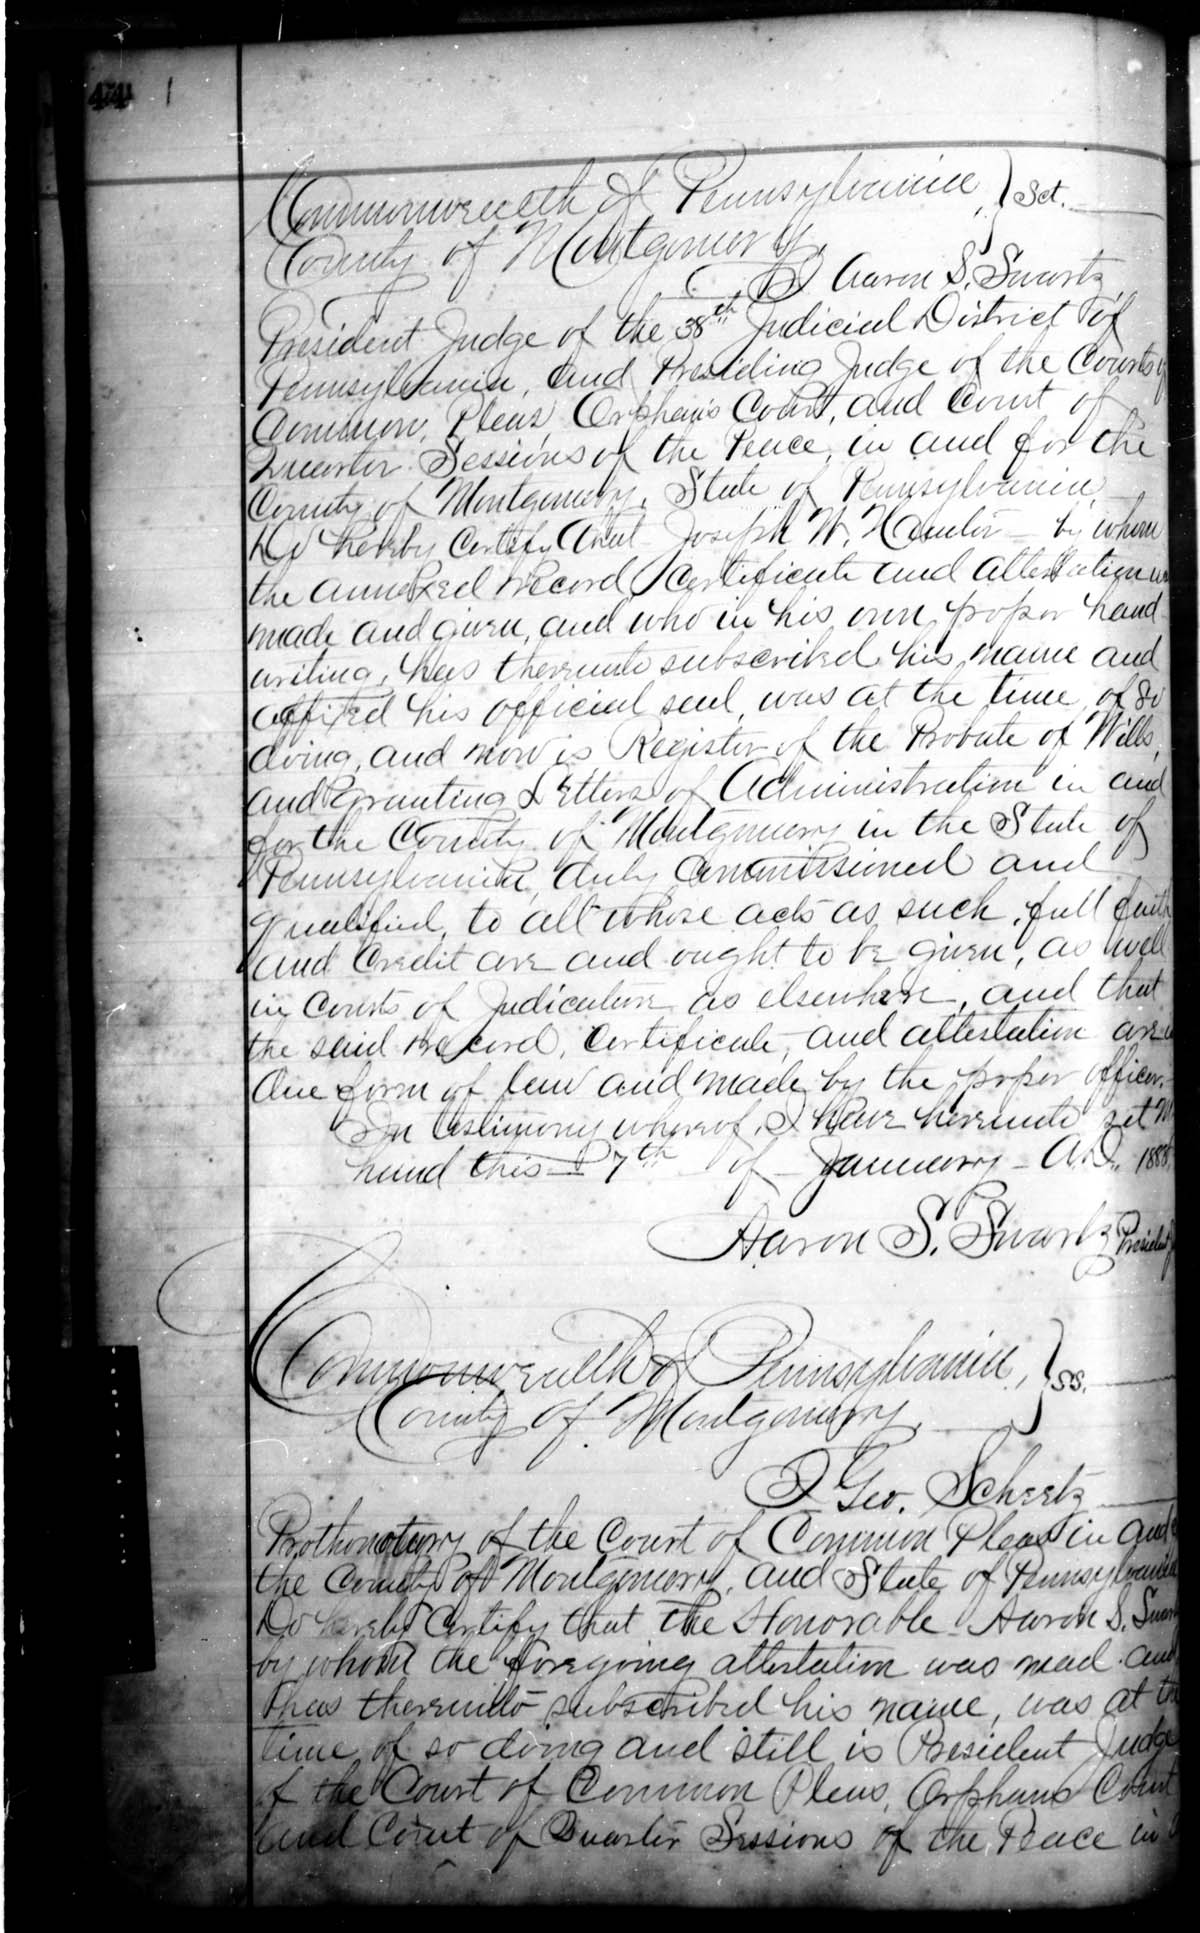 441
Commonwealth of Pennsylvania, } Sct.
County of Montgomery,
I Aaron S. Swartz
President Judge of the 38th Judicial District of
Pennsylvania, and Presiding Judge of the Courts of
Common, Pleas, Orphan's Court, and Court of
Quarter Sessions of the Peace, in and for the
County of Montgomery, State of Pennsylvania
Do hereby Certify that Joseph W. Hunter - by whom
the annexed Record, Certificate and attestation
made and given, and who in his own proper hand
writing, has thereunto subscribed his name and
affixed his official seal, was at the time of So
doing, and now is Register of the Probate of Wills,
and Granting Letters of Administration in and
for the County of Montgomery in the State of
Pennsylvania, duly Commissioned and
qualified, to all whose acts as such, full faith
and Credit are and ought to be given, as well
in Courts of Judicature as elsewhere, and that
the said Record, Certificate, and attestation are
due form of law and made by the proper officer.
In testimony whereof, I have hereunto set
hand this 7th of - January - A.D. 1888
Aaron S. Swartz President
Commonwealth of Pennsylvania, } SS.
County of Montgomery,
I Geo. Schertz
Prothonotary of the Court of Common Pleas in and
the County of Montgomery, and State of Pennsylvania
Do hereby Certify that the Honorable - Aaron S. Swartz
by whom the foregoing attestation was mad and
has thereunto subscribed his name, was at the
time of so doing and still is President Judge
of the Court of Common Pleas, Orphans Court
and Court of Quarter Sessions of the Peace in